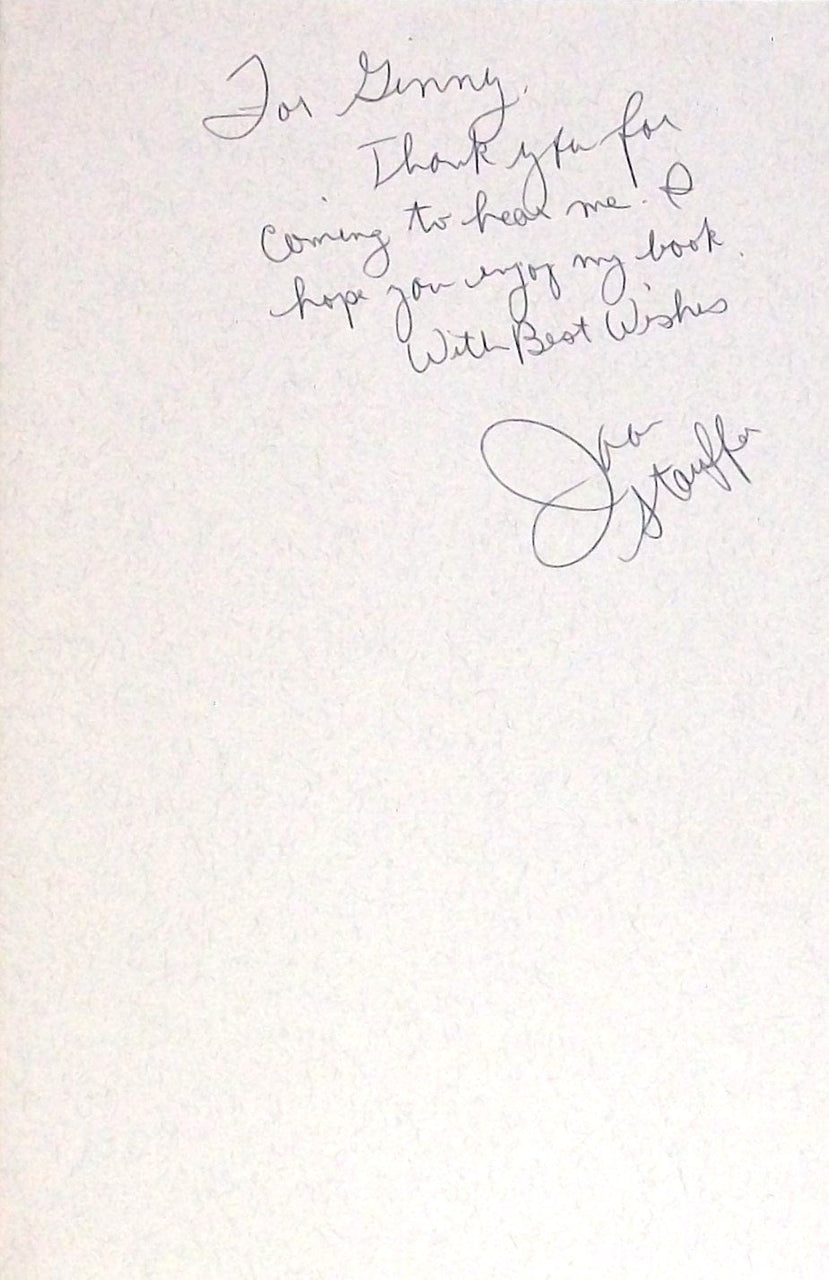 For Ginny,
Thank you for
coming to hear me. I
hope you enjoy my book.
With Best Wishes
Joan
Stauffer